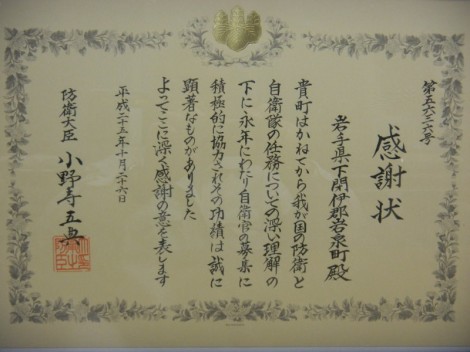 第五六三六号
感謝状
岩手県下閉伊郡岩泉町殿
貴町はかねてから我が国の防衛と
自衛隊の任務についての深い理解の
下に永年にわたり自衛官の募集に
積極的に協力されその功績は誠に
顕著なものがありました
よってここに深く感謝の意を表します
平成二十五年十月二十六日
防衛大臣 小野寺五典